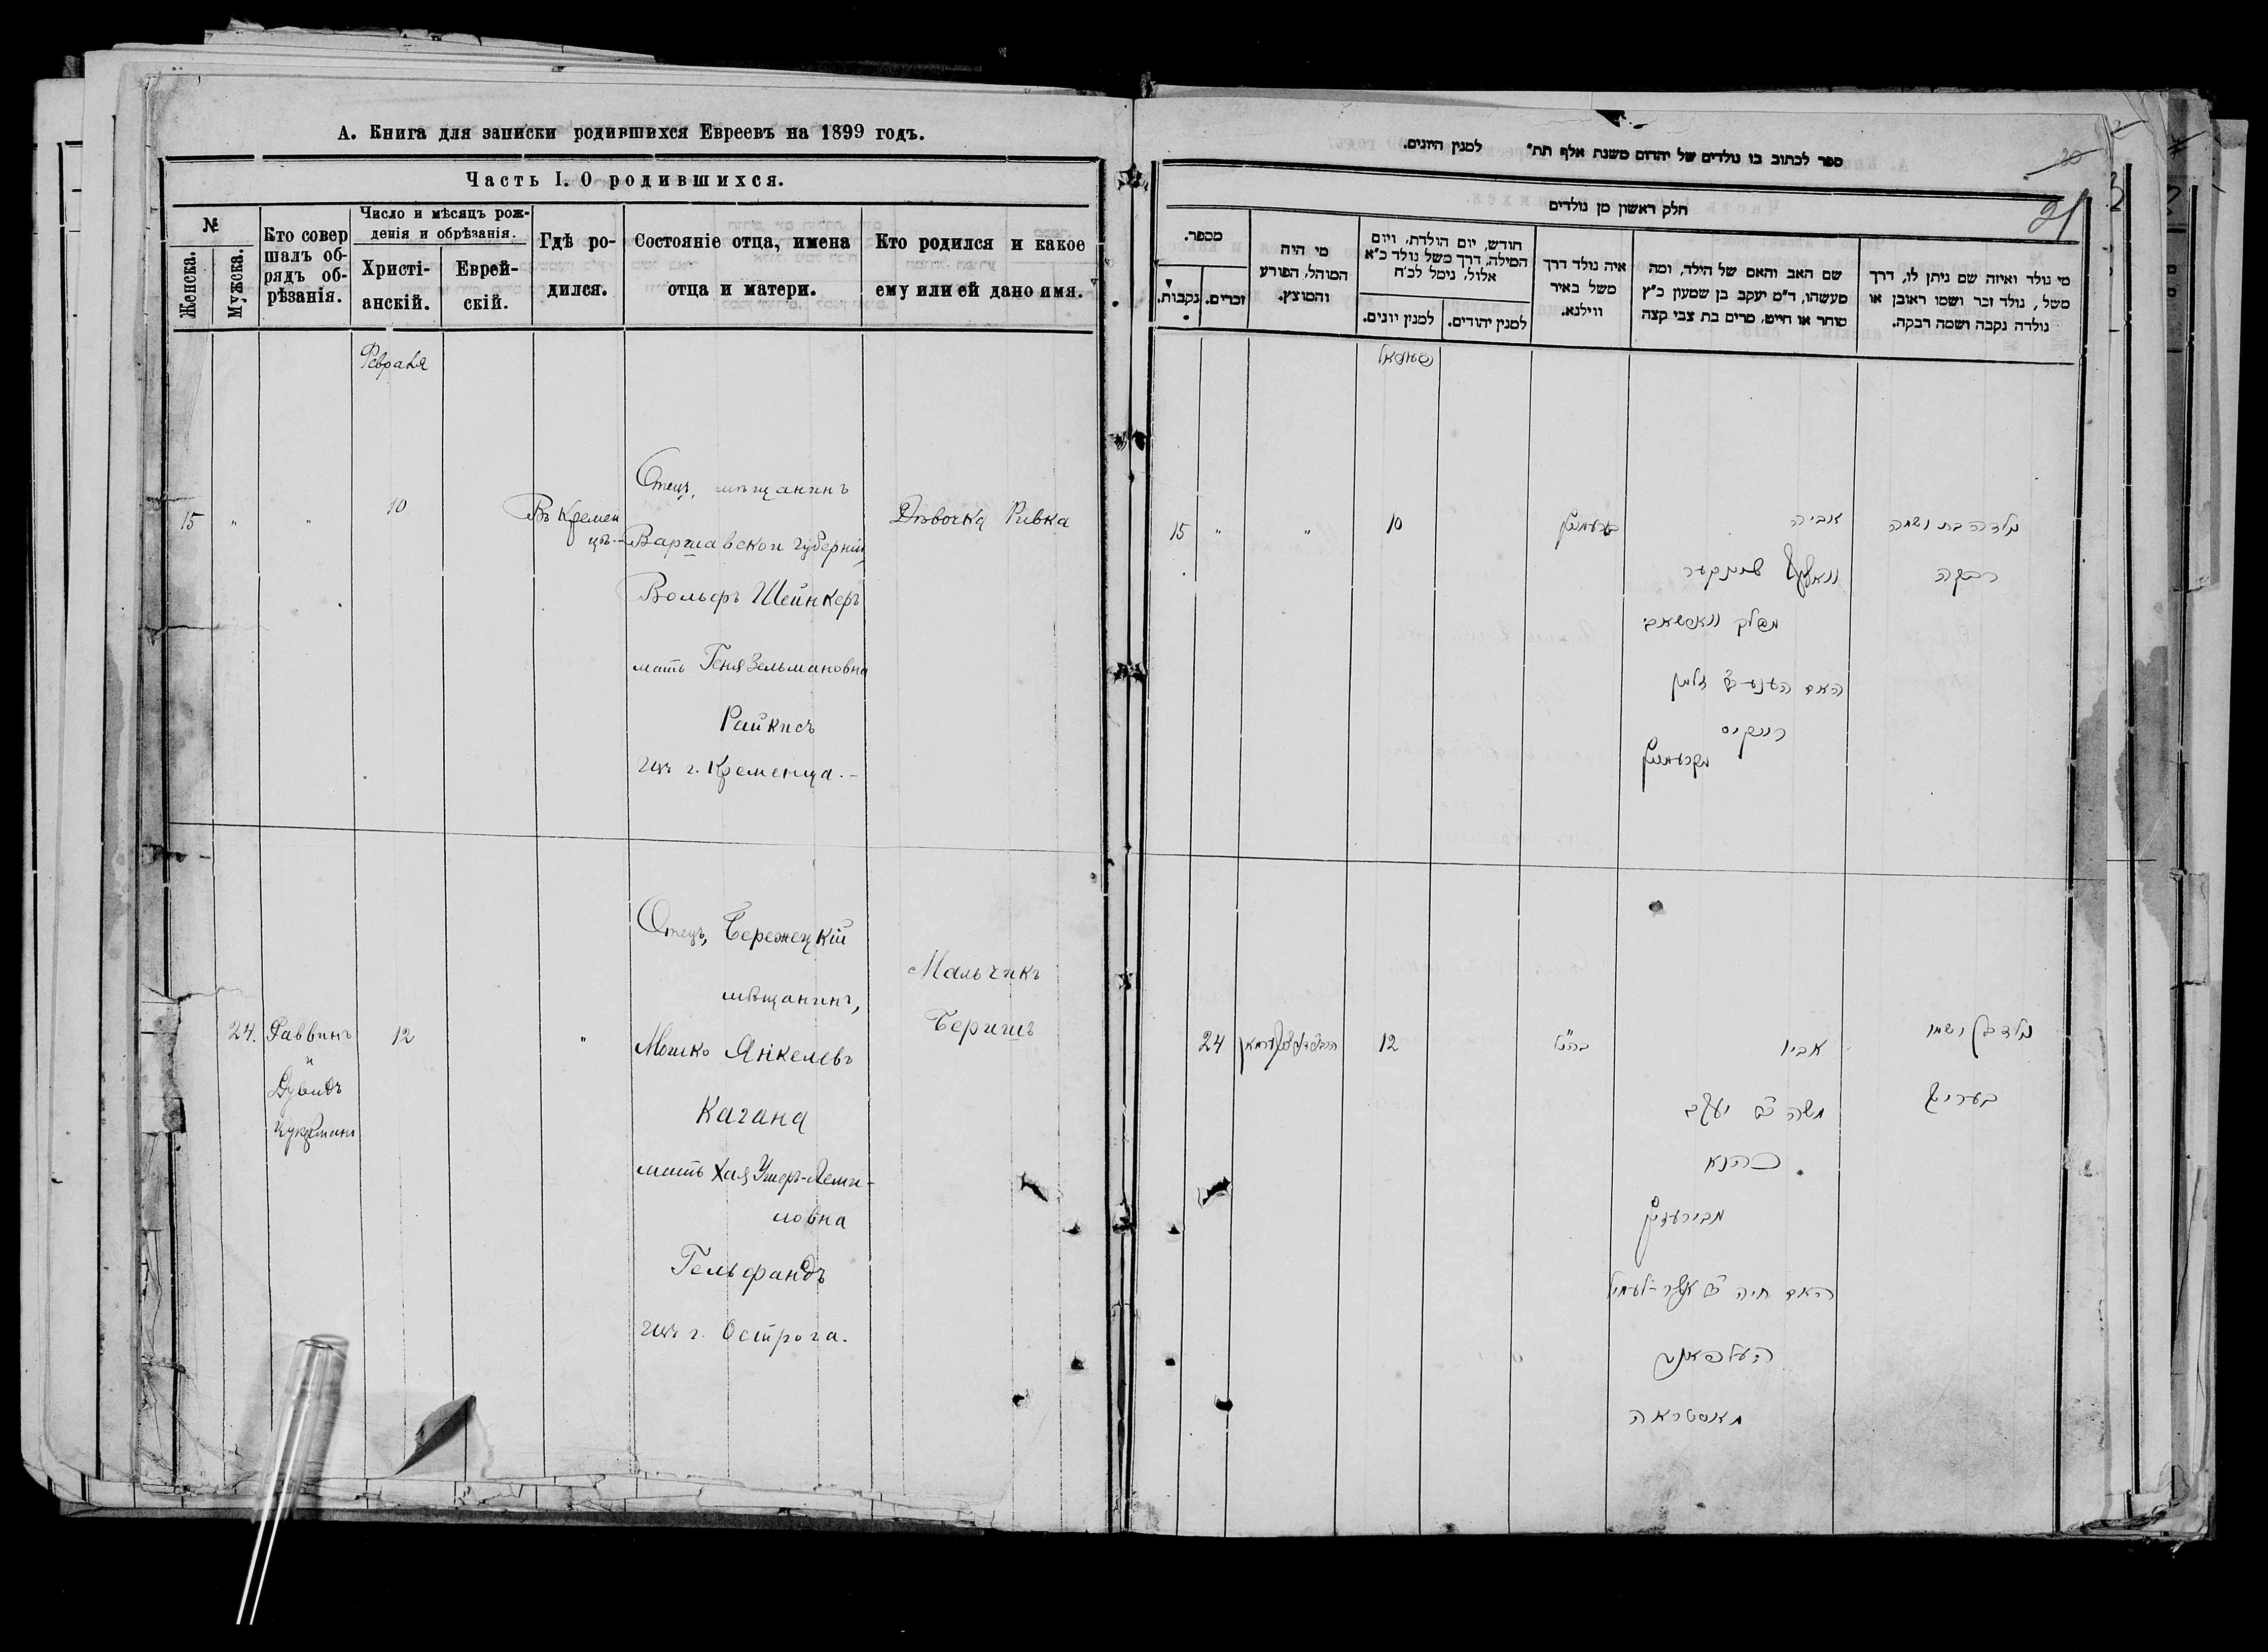 А. Книга для записки родившихся Евреевъ на 1899 годъ.
Часть I. О родившихся.
№
Женска.
Мужска.
Кто совер
шалъ об-
рядъ об-
рѣзанія.
Число и мѣсяцъ рож-
денія и обрѣзанія.
Христі-
анскій.
Еврей-
скій.
Гдѣ ро-
дился.
Состояніе отца, имена
отца и матери.
Кто родился и какое
ему или ей дано имя.
Февраля
15 " " 10
Въ Кремен
цѣ.-
Отецъ, мѣщанинъ
Варшавской губерніи
Вольфъ Шейнкеръ
мать Геня Зельмановна
Райкисъ
изъ г. Кременца.-
Дѣвочка Ривка
24.
Раввинъ
и
Дувидъ
12
"
Отецъ, Бережецкій
мѣщанинъ,
Мошко Янкелевъ
Кагана
мать Хая Ушеръ-Леми-
ловна
Гельфандъ
изъ г. Острога.
Мальчикъ
Беришъ
ספר לכתוב בו נולדים של יהדום משנת אלף תת״ למנין היונים.
20
21
חלק ראשון מן נולדים
מספר.
נקבות.
זכרים.
מי היה
המוהל, הפורע
והמוצץ.
חודש, יום הולדת, ויום
המילה, דרך משל נולד כ״א
אלול, נימל לכ״ח
למנין יונים.
למנין יהודים.
איה נולד דרך
משל באיר
ווילנא.
שם האב והאם של הילד, ומה
מעשהו, ד״מ יעקב בן שמעון כ״ץ
סוחר או חייט, מרים בת צבי קצה
מי נולד ואיזה שם ניתן לו, דרך
משל, נולד זכר ושמו ראובן או
נולדה נקבה ושמה רבקה.
15 " " 10
אביה
וואלף שיינקער
מפלך ווארשאווי
האם העניע ב״ זלמן
רייקיס
מקרעמניץ
נולדה בת ושמה
רבקה
24
12
בהנ״ל
אביו
משה ב״ יעקב
כהנא
האם חיה ב״ אשר-לעמיל
העלפאנד
מאסטראה
נולד בן ושמו
בעריש